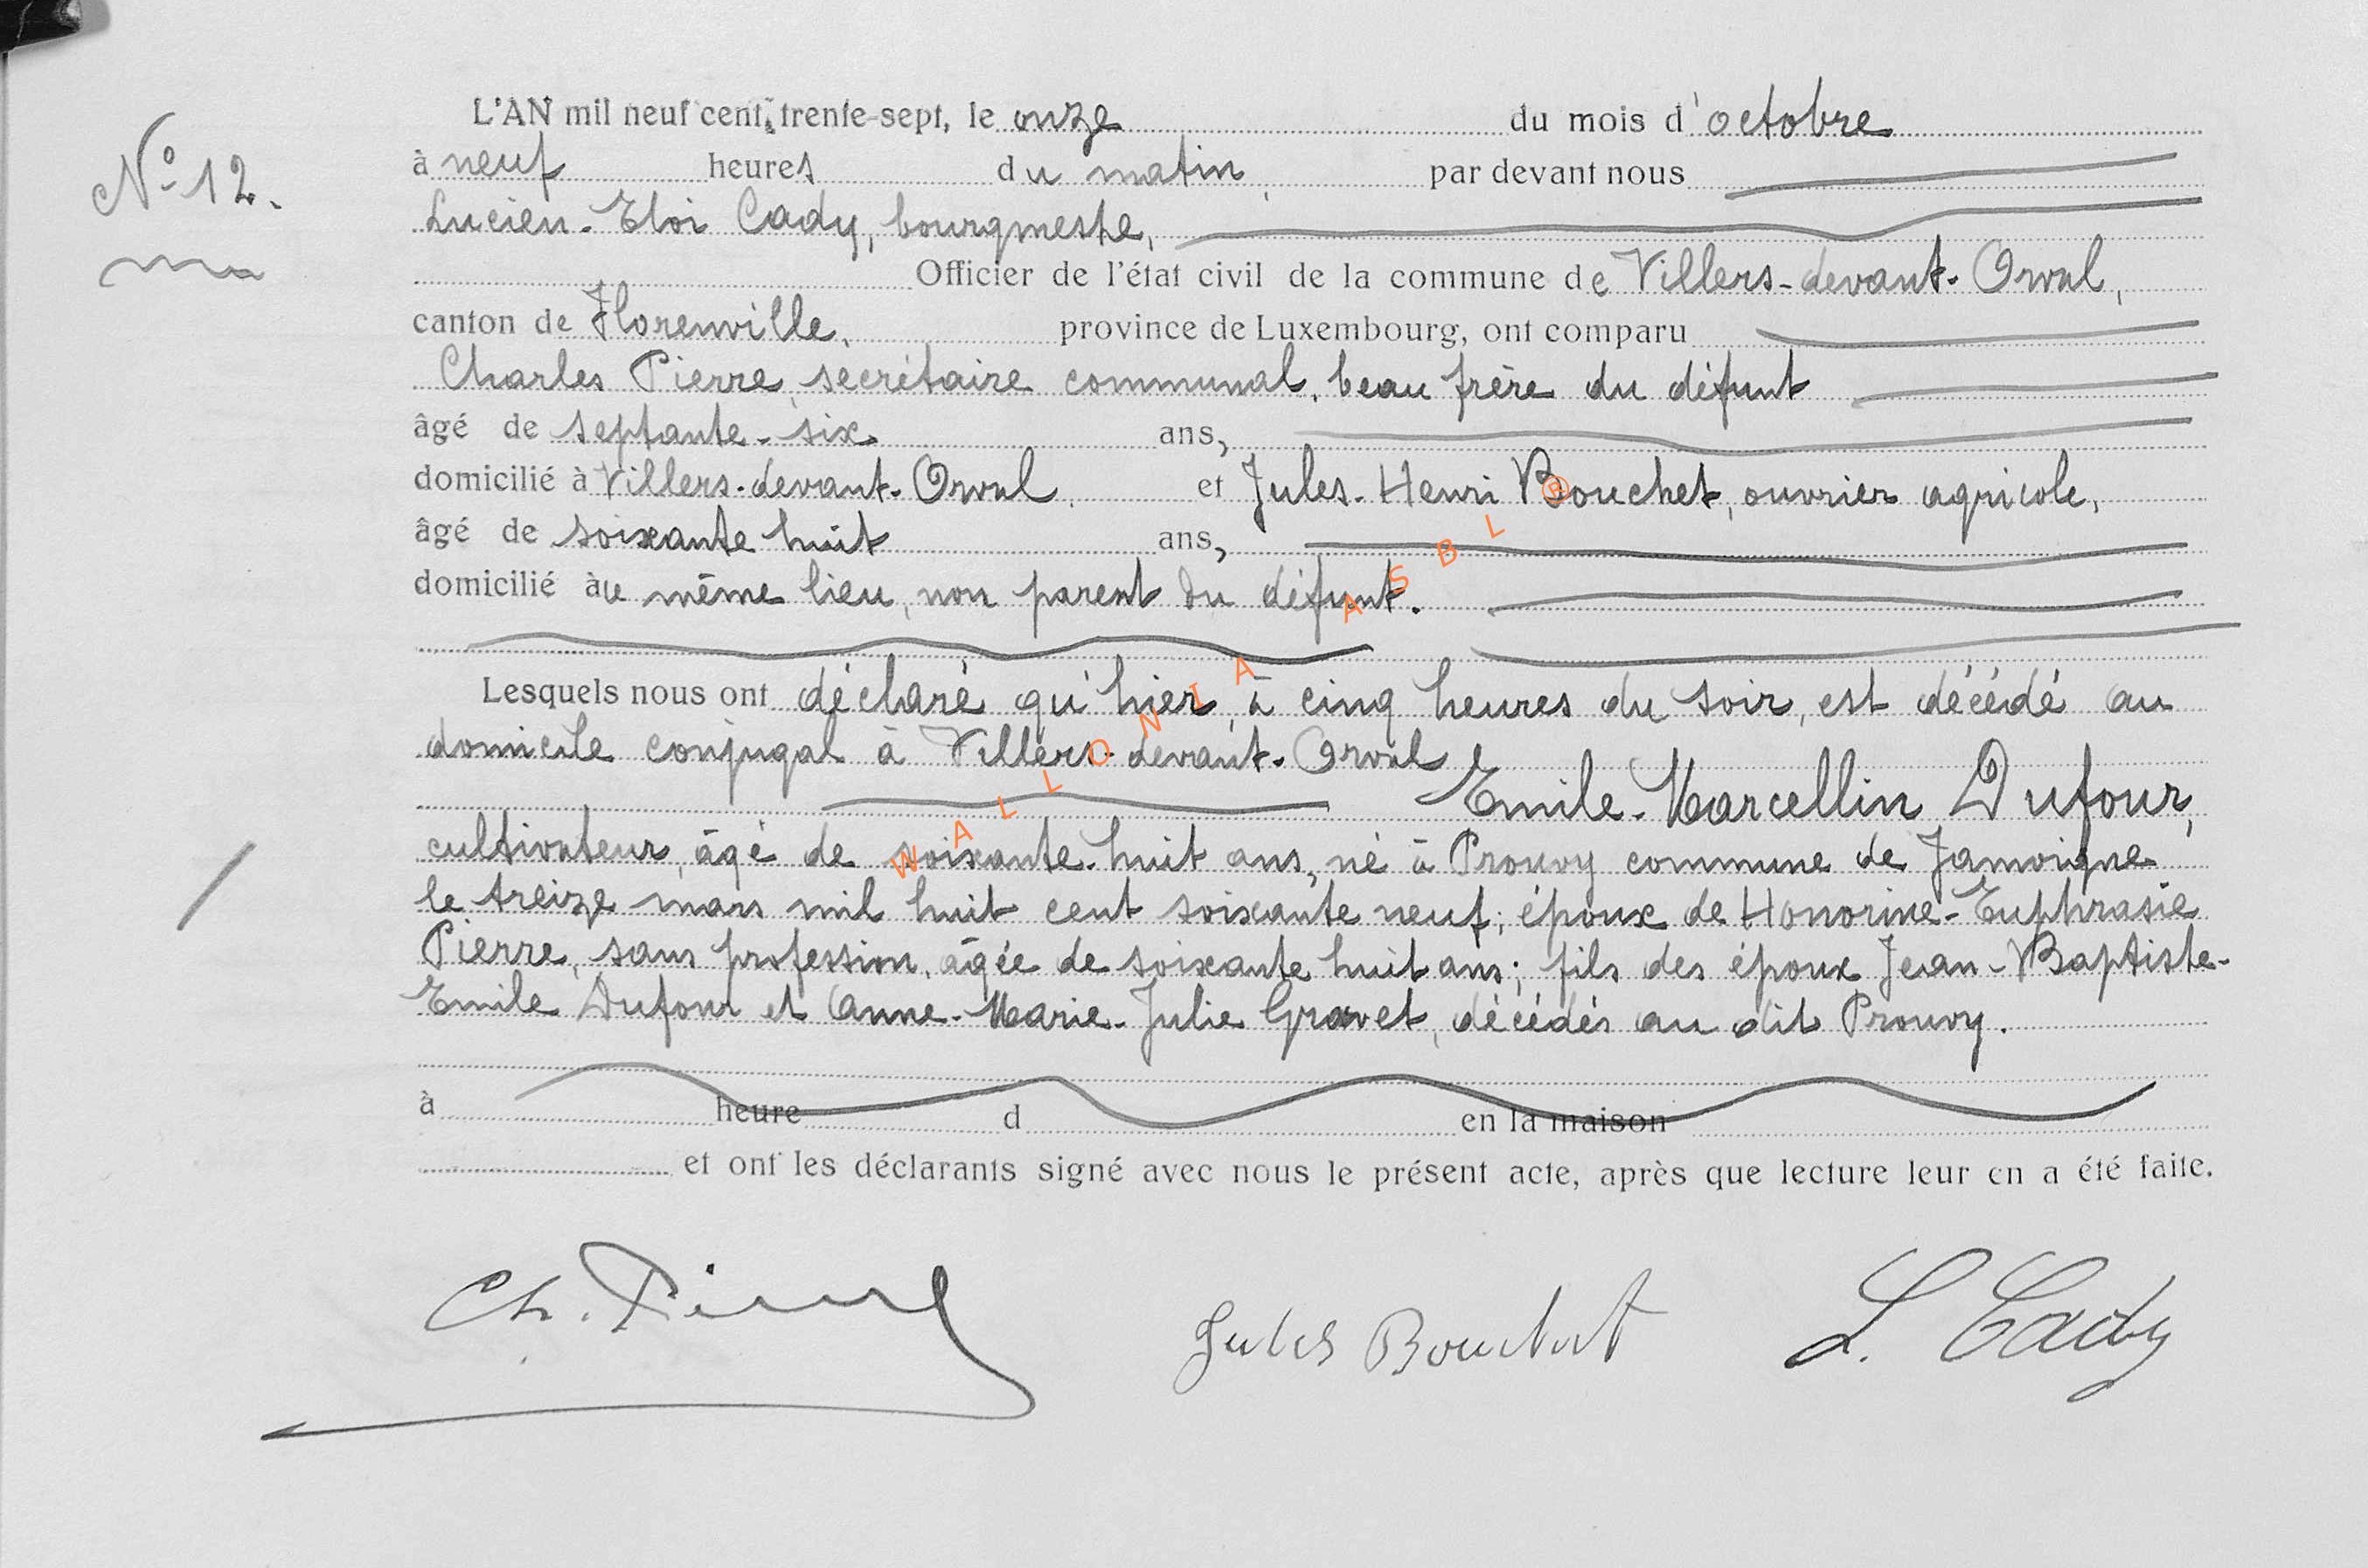 L'AN mil neuf cent trente-sept, le onze du mois d'octobre
N° 12.
à neuf heures du matin, par devant nous
Lucien-Eloi Cady, bourgmestre,
Officier de l'état civil de la commune de Villers-devant-Orval,
canton de Florenville, province de Luxembourg, ont comparu
Charles Pierre, secrétaire communal, beau frère du défunt
âgé de septante-six ans,
domicilié à Villers-devant-Orval, et Jules-Henri Bouchet, ouvrier agricole,
âgé de soixante huit ans,
domicilié au même lieu, non parent du défunt.
Lesquels nous ont déclaré qu'hier, à cinq heures du soir, est décédé au
domicile conjugal à Villers-devant-Orval
Emile-Marcellin Dufour,
cultivateur, âgé de soixante-huit ans, né à Prouvy commune de Jamoigne
le treize mars mil huit cent soixante neuf; époux de Honorine-Euphrasie
Pierre, sans profession, âgée de soixante huit ans; fils des époux Jean-Baptiste-
Emile Dufour et Anne-Marie-Julie Gravet, décédés au dit Prouvy.
à heure d en la maison
et ont les déclarants signé avec nous le présent acte, après que lecture leur en a été faite.
Ch. Pierre Jules Bouchet L. Cady
WALLONIA ASBL ®